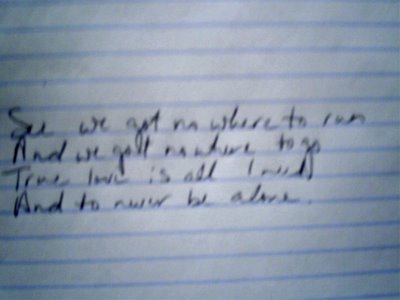 See we got no where to run
And we gott nowhere to go
True love is all I need
And to never be alone.